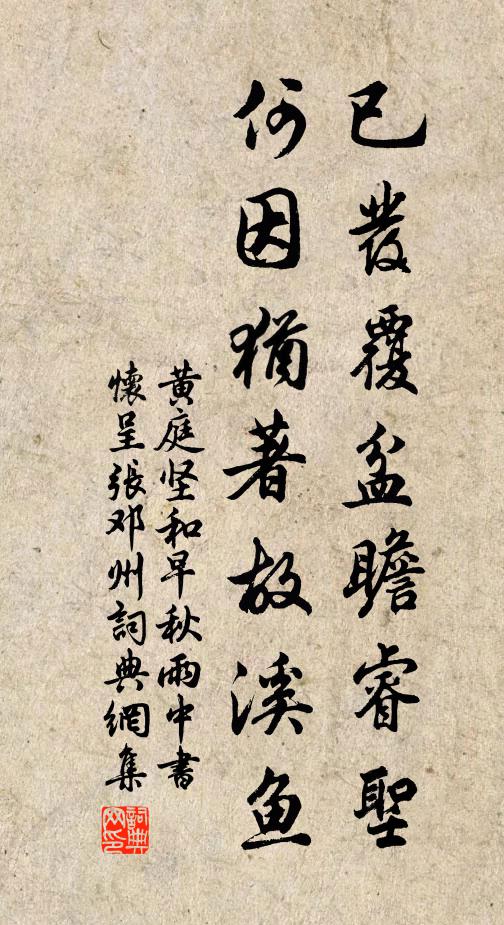 已發覆盆瞻睿聖
何因猶著故溪鱼
黄庭坚和早秋雨中書
懷呈張邓州詞典網集
詞典网印